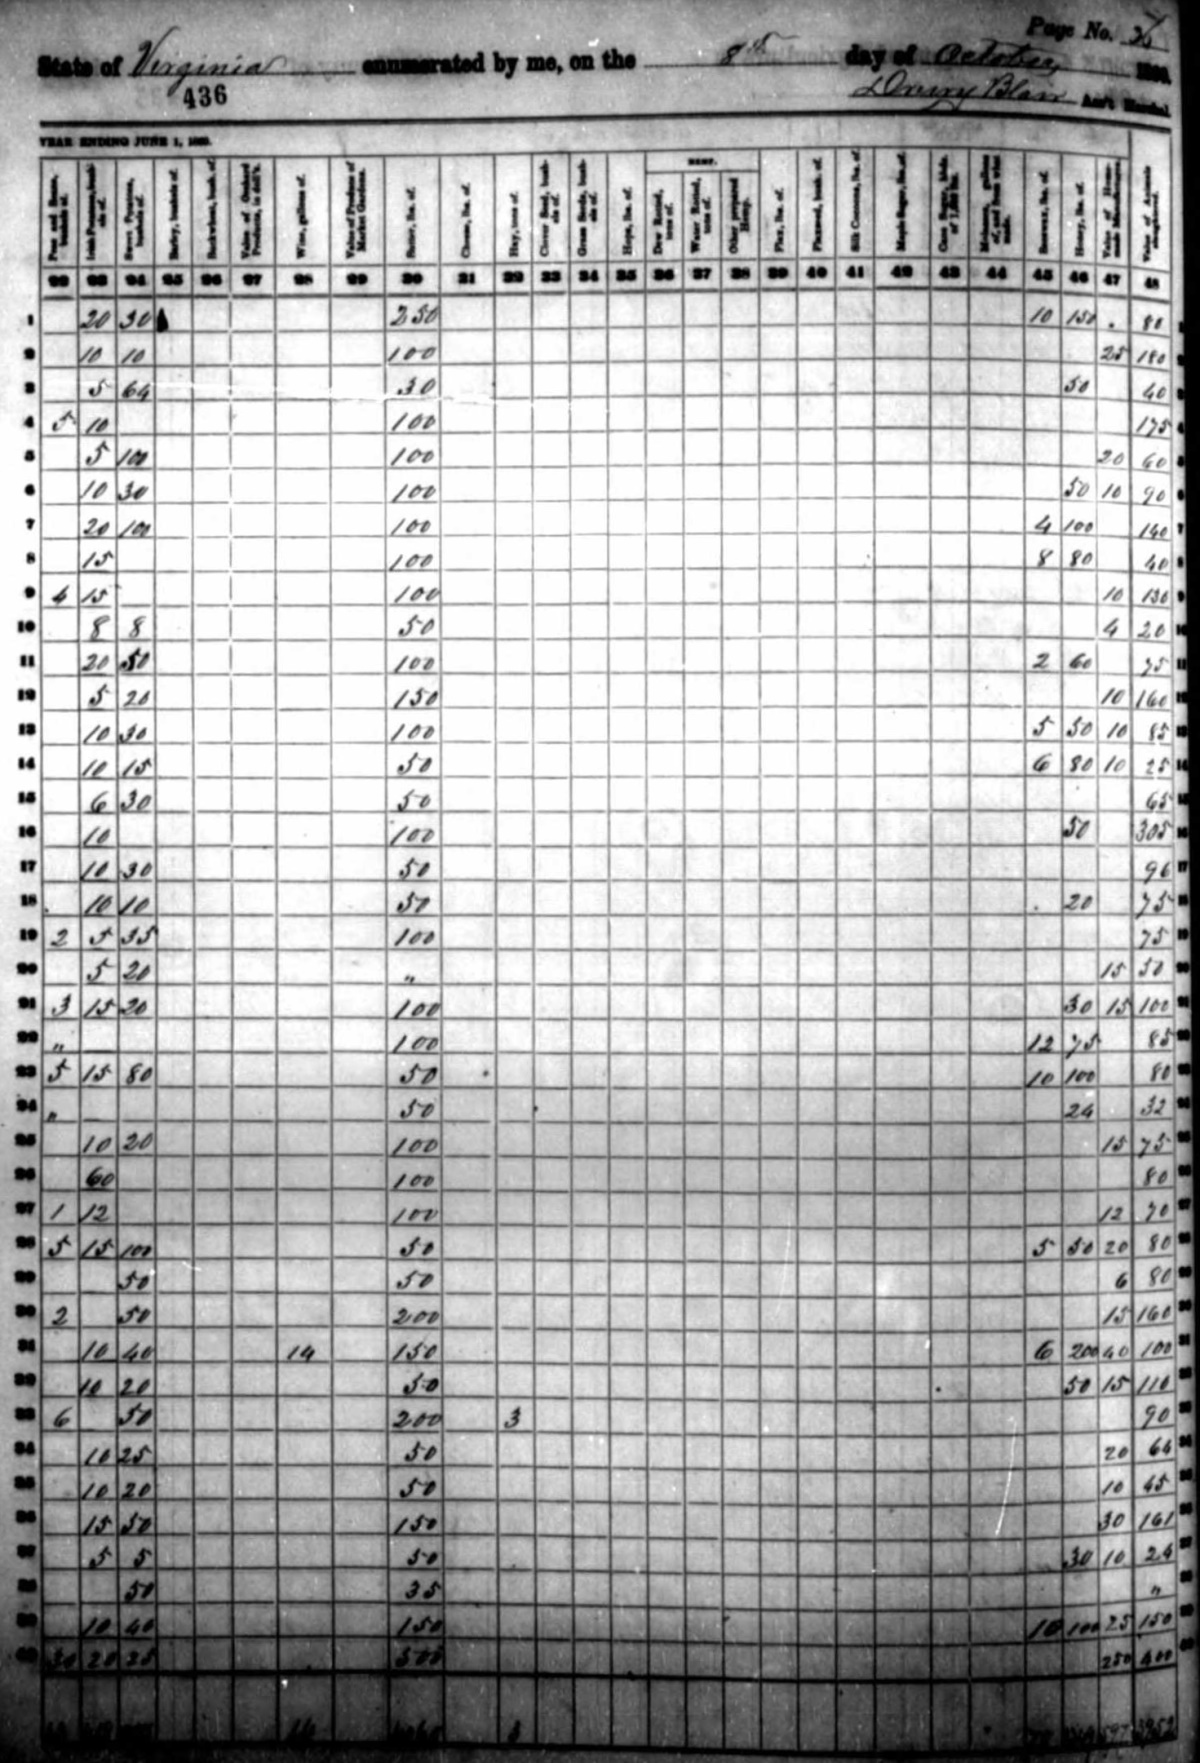 Page No.
State of Virginia enumerated by me, on the 8th day of October 1860.
436
Drury Blair Ass't Marshal.
YEAR ENDING JUNE 1, 1860.
HEMP.
Peas and Beans, bushels of. Irish Potatoes, bushels of. Sweet Potatoes, bushels of. Barley, bushels of. Buckwheat, bush. of. Value of Orchard Products, in doll's. Wine, gallons of. Value of Produce of Market Gardens. Butter, lbs. of. Cheese, lbs. of. Hay, tons of. Clover Seed, bushels of. Grass Seeds, bushels of. Hops, lbs. of. Dew Rotted, tons of. Water Rotted, tons of. Other prepared Hemp. Flax, lbs. of. Flaxseed, bush. of. Silk Cocoons, lbs. of. Maple Sugar, lbs. of. Cane Sugar, hhds. of 1,000 lbs. Molasses, gallons of, and from what made. Beeswax, lbs. of. Honey, lbs. of. Value of Home-made Manufactures. Value of Animals slaughtered.
22 23 24 25 26 27 28 29 30 31 32 33 34 35 36 37 38 39 40 41 42 43 44 45 46 47 48
1 20 30 250 10 150 80 1
2 10 10 100 25 180 2
3 5 64 30 50 40 3
4 5 10 100 175 4
5 5 100 100 20 60 5
6 10 30 100 50 10 90 6
7 20 100 100 4 100 140 7
8 15 100 8 80 40 8
9 4 15 100 10 130 9
10 8 8 50 4 20 10
11 20 50 100 2 60 75 11
12 5 20 150 10 160 12
13 10 30 100 5 50 10 85 13
14 10 15 50 6 80 10 25 14
15 6 30 50 65 15
16 10 100 50 305 16
17 10 30 50 96 17
18 10 10 50 20 75 18
19 2 5 35 100 75 19
20 5 20 " 15 50 20
21 3 15 20 100 30 15 100 21
22 " 100 12 75 85 22
23 5 15 80 50 10 100 80 23
24 " 50 24 32 24
25 10 20 100 15 75 25
26 60 100 80 26
27 1 12 100 12 70 27
28 5 15 100 50 5 50 20 80 28
29 50 50 6 80 29
30 2 50 200 15 160 30
31 10 40 14 150 6 200 40 100 31
32 10 20 50 50 15 110 32
33 6 50 200 3 90 33
34 10 25 50 20 64 34
35 10 20 50 10 45 35
36 15 50 150 30 161 36
37 5 5 50 30 10 24 37
38 50 35 " 38
39 10 40 150 10 100 25 150 39
40 30 20 25 500 250 400 40
14 3